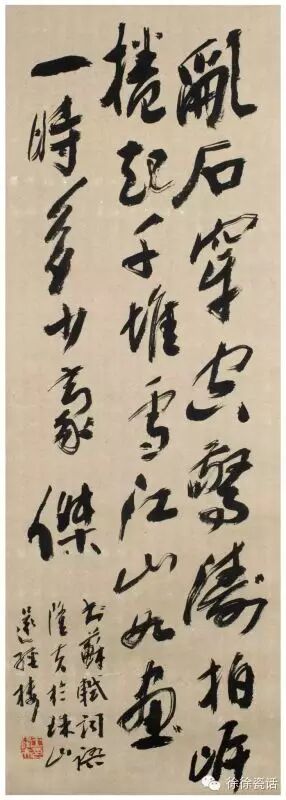 亂石穿空驚濤拍岸
捲起千堆雪江山如畫
一時多少豪傑
書蘇軾詞語
隆克於珠山
徐徐瓷话